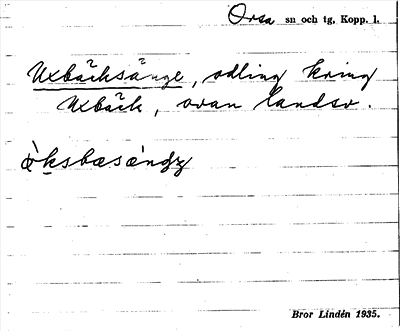 Orsa sn och tg, Kopp. l.
Uxbäcksänge, odling kring
Uxbäck, ovan landsv.
Bror Lindén 1935.